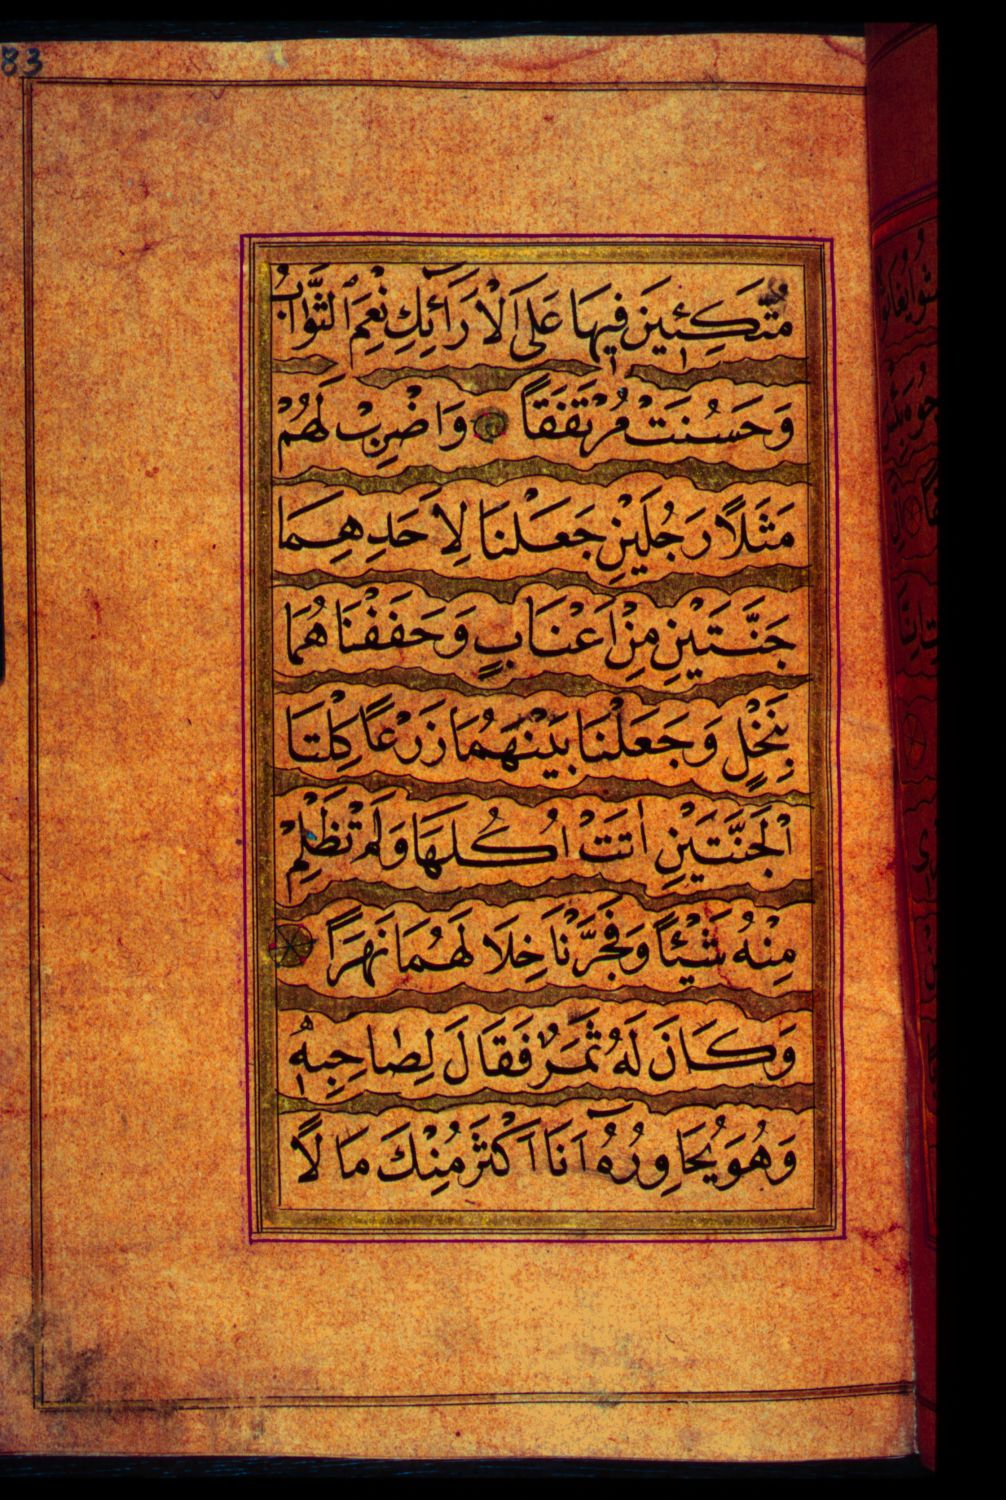 83
مُتَّكِـِٔينَ فِيهَا عَلَى الْاَرَآئِكِ نِعْمَ الثَّوَابُ
وَحَسُنَتْ مُرْتَفَقًا وَاضْرِبْ لَهُمْ
مَثَلًا رَجُلَيْنِ جَعَلْنَا لِاَحَدِهِمَا
جَنَّتَيْنِ مِنْ اَعْنَابٍ وَحَفَفْنَاهُمَا
بِنَخْلٍ وَجَعَلْنَا بَيْنَهُمَا زَرْعًا كِلْتَا
الْجَنَّتَيْنِ اٰتَتْ اُكُلَهَا وَلَمْ تَظْلِمْ
مِنْهُ شَيْئًا وَفَجَّرْنَا خِلَا لَهُمَا نَهَرًا
وَكَانَ لَهُ ثَمَرٌ فَقَالَ لِصَاحِبِهٖ
وَهُوَ يُحَاوِرُهُٓ اَنَا اَكْثَرُ مِنْكَ مَالًا